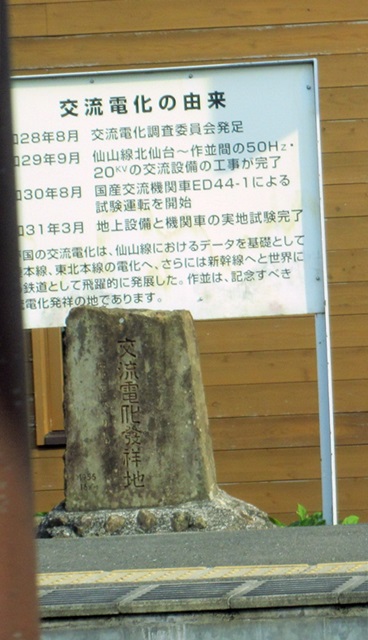 交流電化の由来
28年8月 交流電化調査委員会発足
29年9月 仙山線北仙台～作並間の50Hz・
20KVの交流設備の工事が完了
30年8月 国産交流機関車ED44-1による
試験運転を開始
31年3月 地上設備と機関車の実地試験完了
国の交流電化は、仙山線におけるデータを基礎として
本線、東北本線の電化へ、さらには新幹線へと世界に
鉄道として飛躍的に発展した。作並は、記念すべき
電化発祥の地であります。
交流電化發祥地